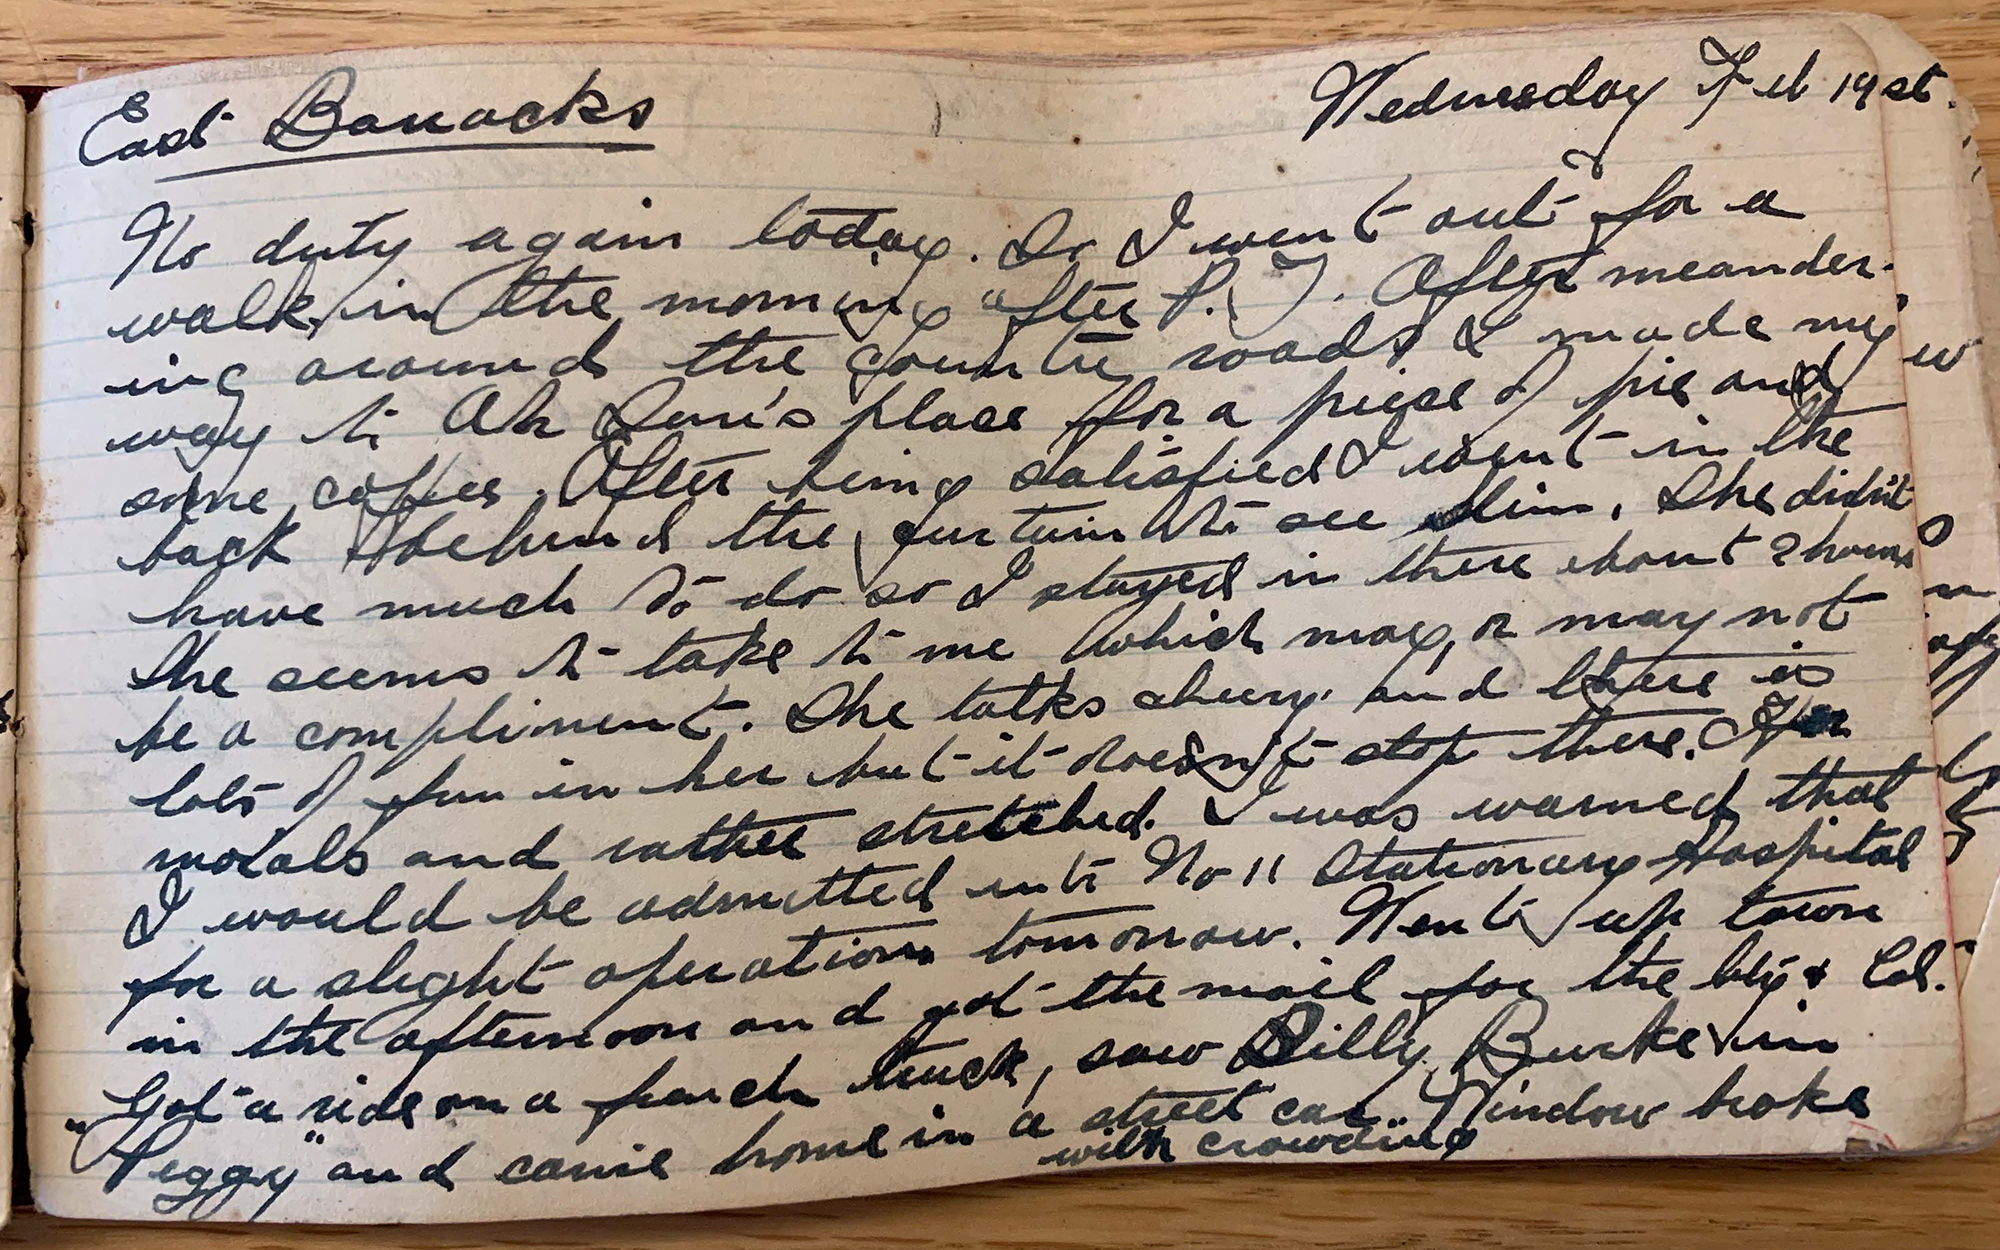 East Barracks
Wednesday Feb 19st.
No duty again today. So I went out for a
walk in the morning after P.T. After meander-
ing around the countr roads I made my
way to Ah Sam's place for a piece of pie and
some coffee. After being satisfied I went in the
back behind the curtain to see Slim. She didn't
have much to do so I stayed in there about 2 hours
She seems to take to me which may, or may not
be a compliment. She talks cheery and there is
lots of fun in her but it doesn't stop there. Her
morals and rather stretched. I was warned that
I would be admitted into No 11 Stationary Hospital
for a slight operation tomorrow. Went up town
in the afternoon and got the mail for the bty & Col.
Got a ride on a truck, saw Billy Burke in
"Peggy" and came home in a street car. Window broke
with crowding